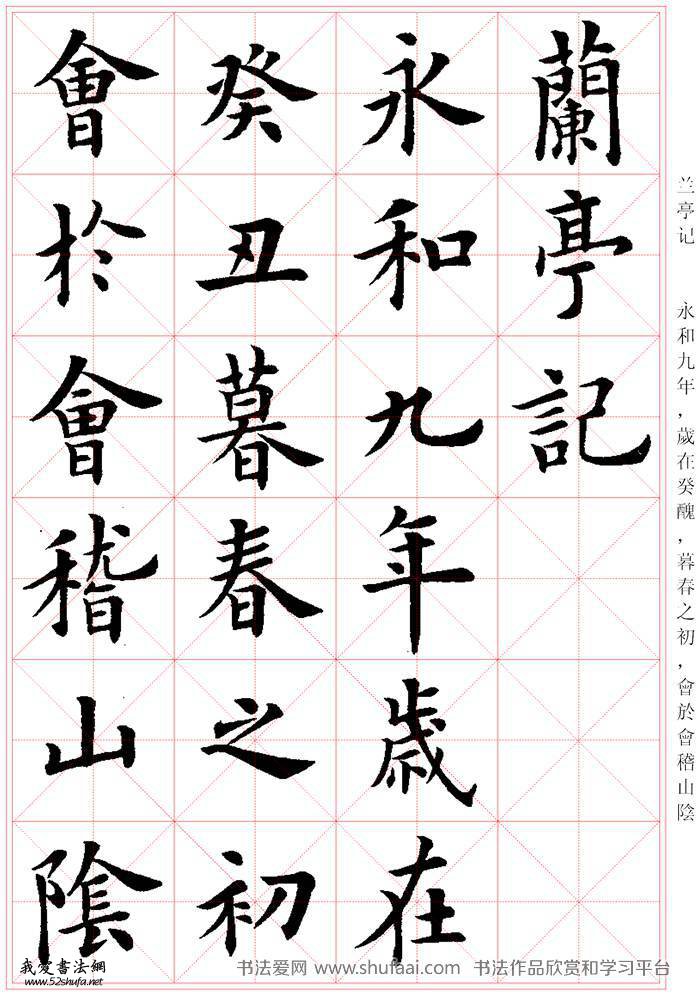 蘭亭記
永和九年歲在
癸丑暮春之初
會於會稽山陰
兰亭记 永和九年，歲在癸醜，暮春之初，會於會稽山陰
我爱書法網
www.52shufa.net
书法爱网 www.shufaai.com 书法作品欣赏和学习平台